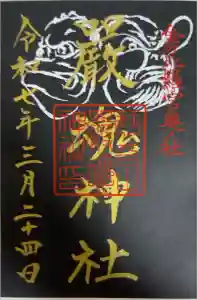 奥社
嚴魂神社
令和七年三月二十四日